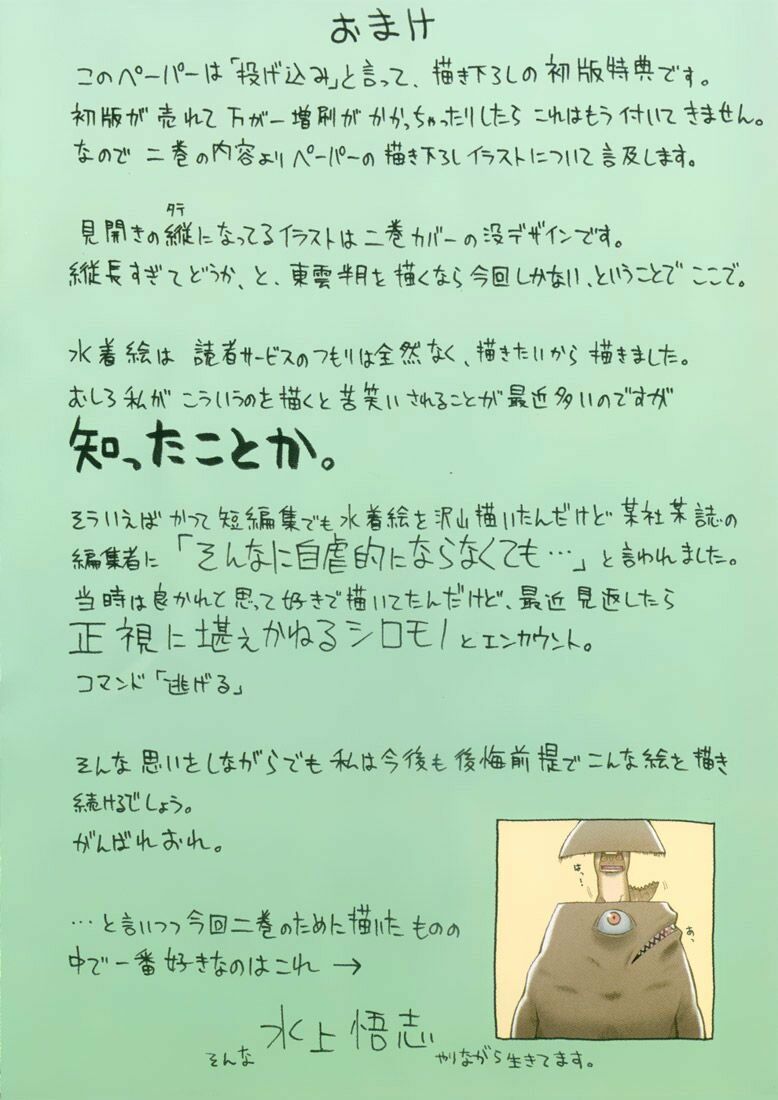 おまけ
このペーパーは「投げ込み」と言って、描き下ろしの初版特典です。
初版が売れて万が一増刷がかかっちゃったりしたらこれはもう付いてきません。
なので二巻の内容よりペーパーの描き下ろしイラストについて言及します。
タテ
見開きの縦になってるイラストは二巻カバーの没デザインです。
縦長すぎてどうか、と、東雲半月を描くなら今回しかない、ということでここで。
水着絵は読者サービスのつもりは全然なく、描きたいから描きました。
むしろ私がこういうのを描くと苦笑いされることが最近多いのですが
知ったことか。
そういえばかつて短編集でも水着絵を沢山描いたんだけど某社某誌の
編集者に「そんなに自虐的にならなくても…」と言われました。
当時は良かれと思って好きで描いてたんだけど、最近見返したら
正視に堪えかねるシロモノとエンカウント。
コマンド「逃げる」
そんな思いをしながらでも私は今後も後悔前提でこんな絵を描き
続けるでしょう。
がんばれおれ。
…と言いつつ今回二巻のために描いたものの
中で一番好きなのはこれ→
はっ…!
あっ
そんな 水上悟志 やりながら生きてます。